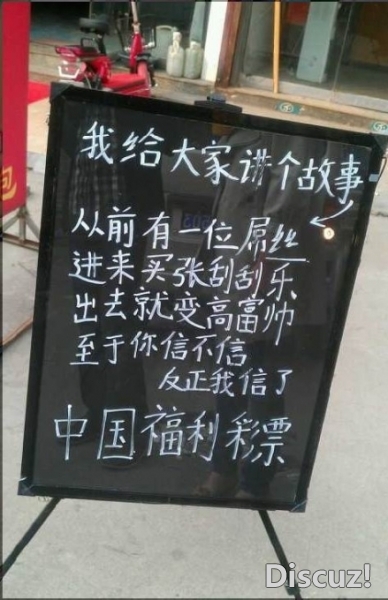 我给大家讲个故事
从前有一位屌丝
进来买张刮刮乐
出去就变高富帅
至于你信不信
反正我信了
中国福利彩票
Discuz!